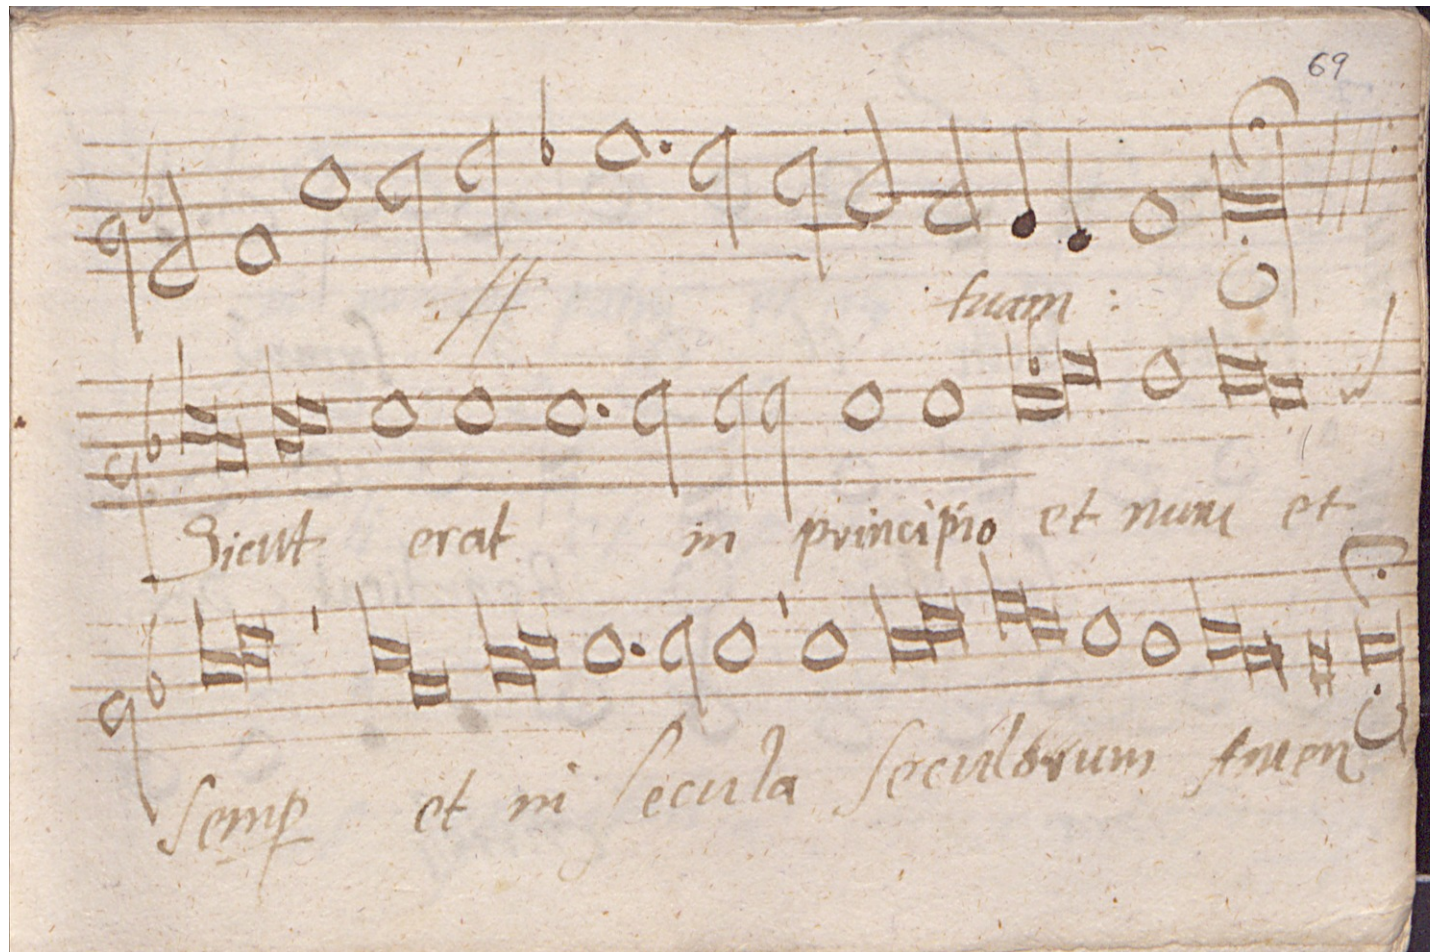 69
tuam :
Sicut erat in principio et nunc et
semp et in secula seculorum Amen